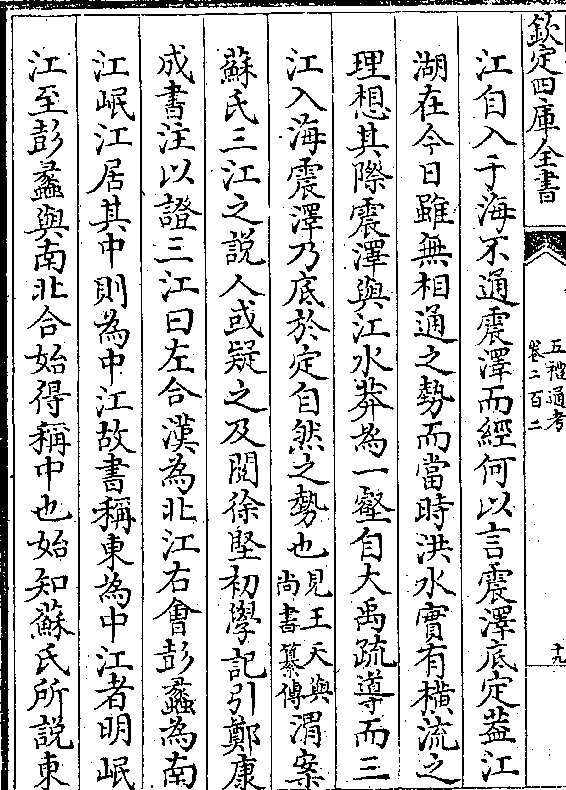 欽定四庫全書
五禮通考
卷二百二
十九
江自入于海不通震澤而經何以言震澤底定蓋江
湖在今日雖無相通之勢而當時洪水實有橫流之
理想其際震澤與江水莽為一壑自大禹疏導而三
江入海震澤乃底於定自然之勢也見王天與尚書纂傳渭案
蘇氏三江之說人或疑之及閱徐堅初學記引鄭康
成書注以證三江曰左合漢為北江右會彭蠡為南
江岷江居其中則為中江故書稱東為中江者明岷
江至彭蠡與南北合始得稱中也始知蘇氏所說東